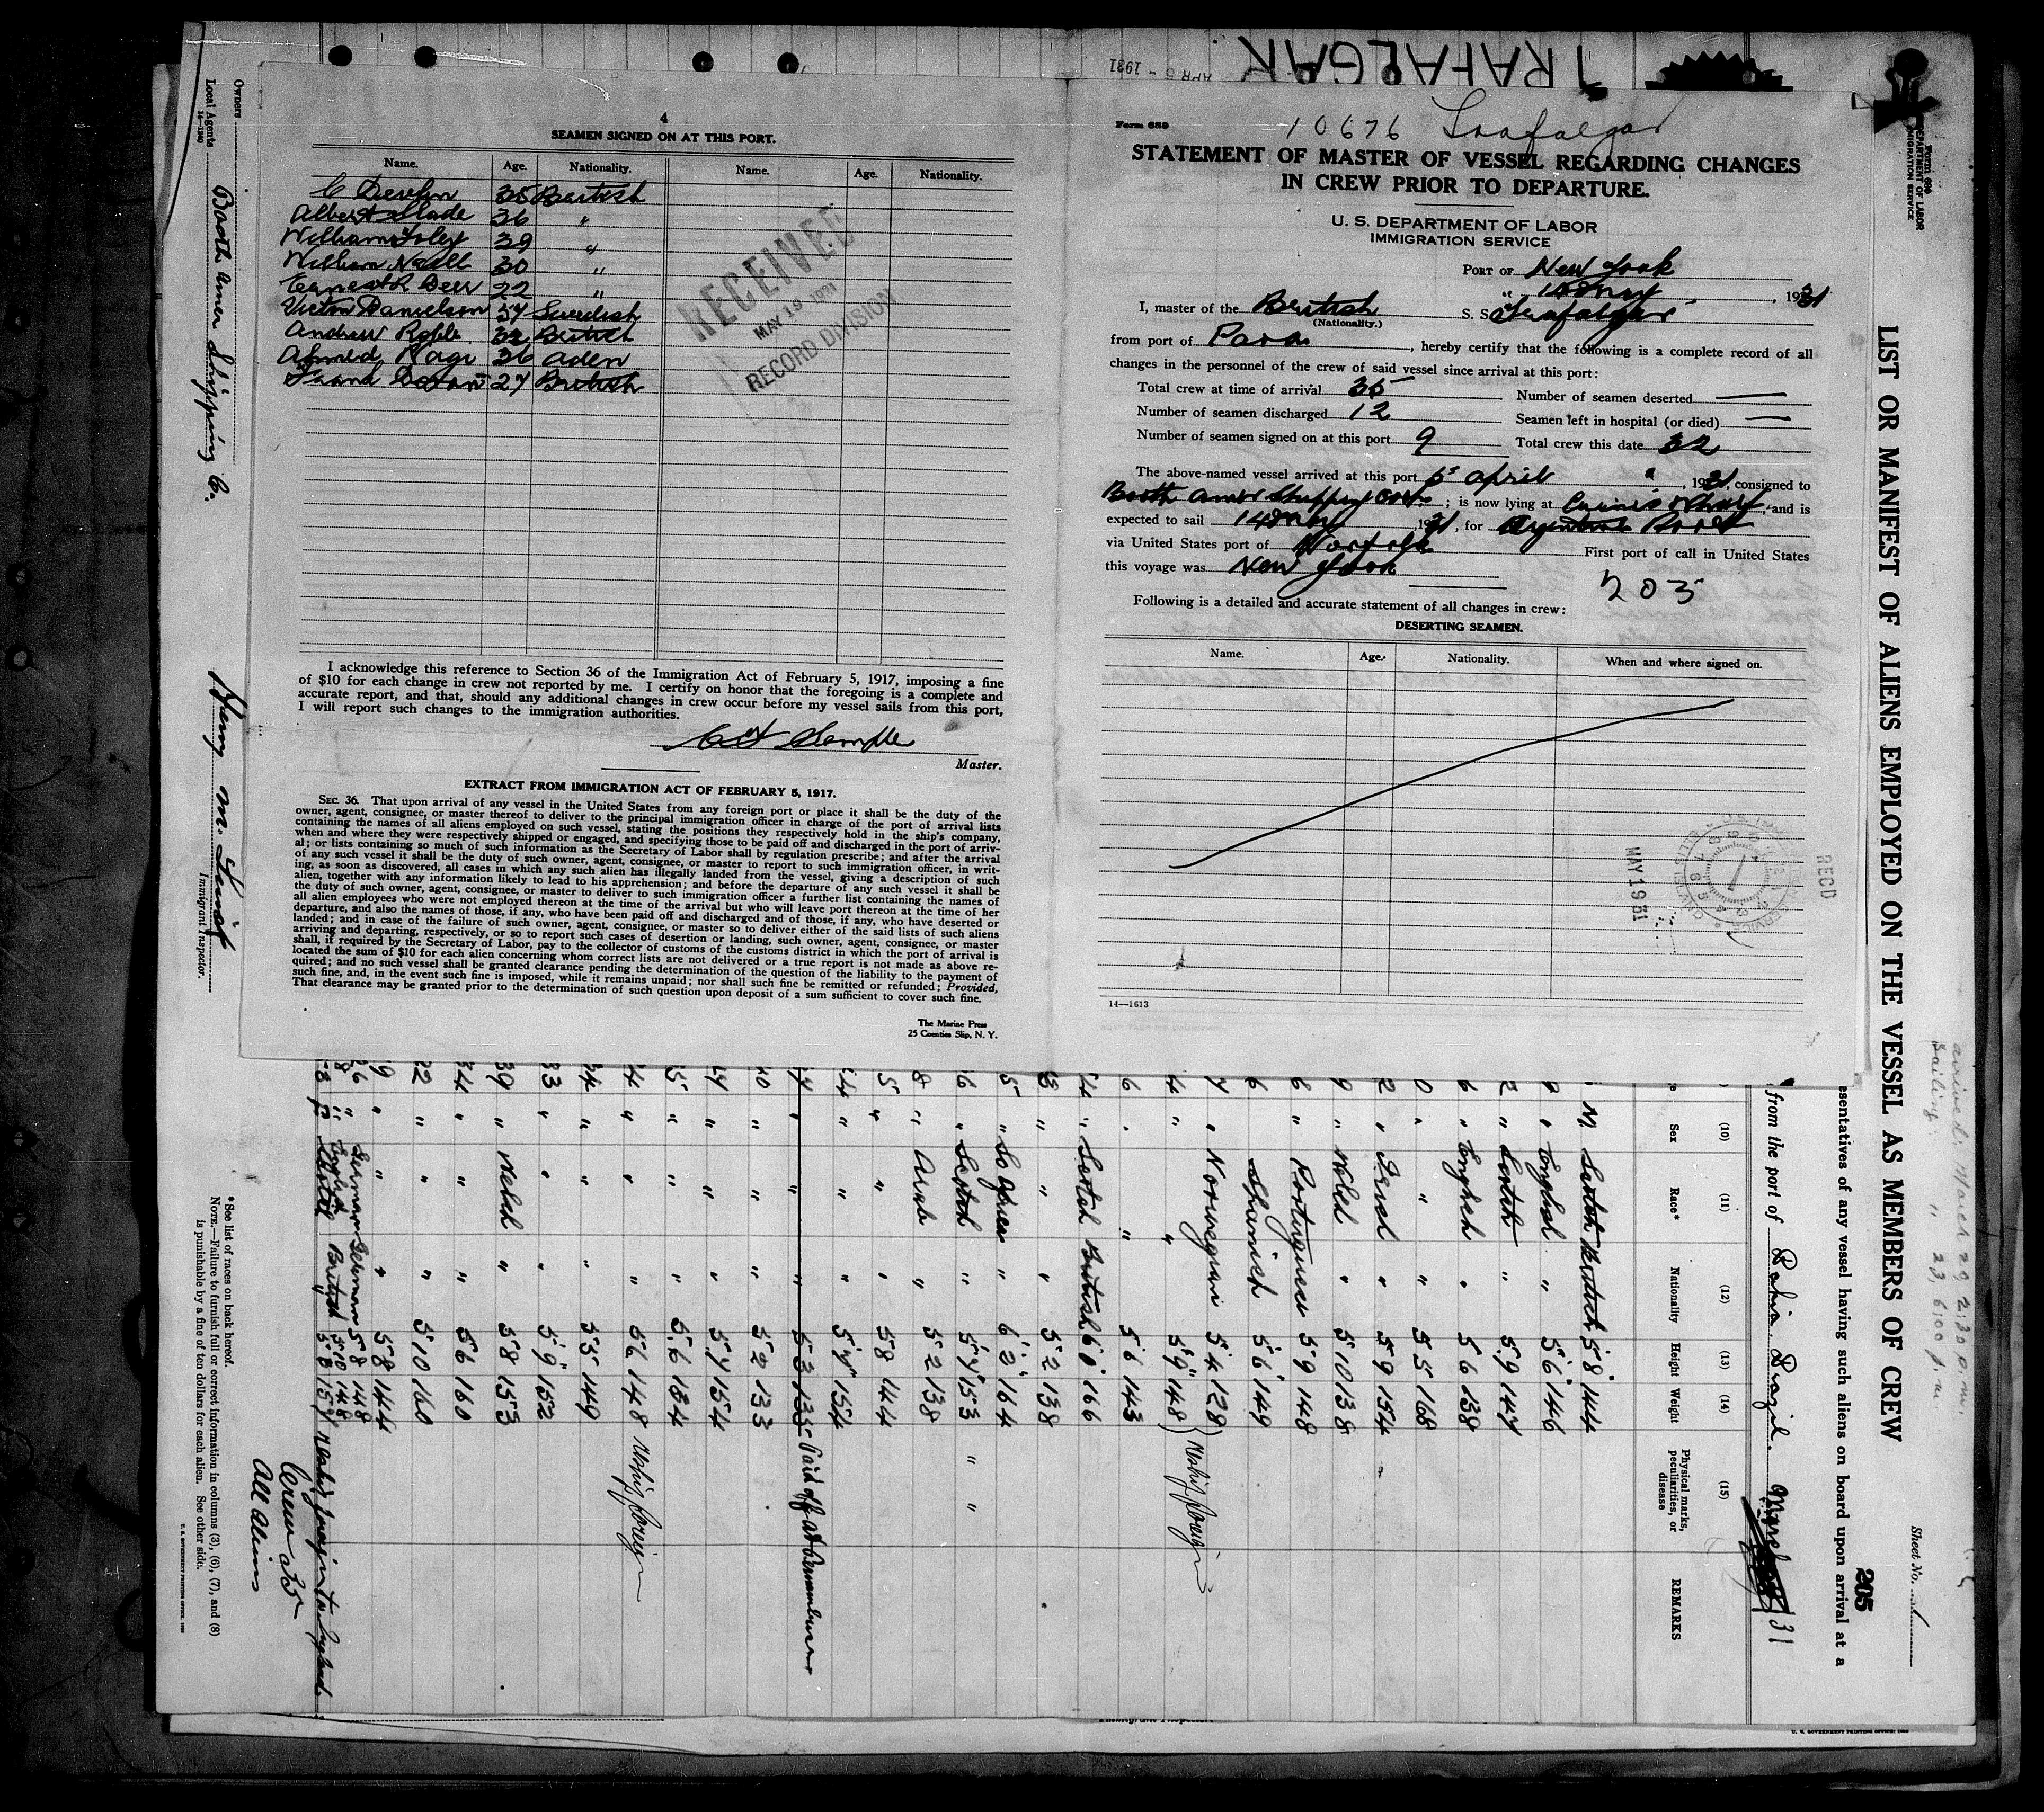 TRAFALGAR
APR 5 - 1931
4
SEAMEN SIGNED ON AT THIS PORT.
Name. Age. Nationality. Name. Age. Nationality.
C Devlin 35 British
Albert Slade 36 "
William Foley 39 "
William 30 "
Ernest R Deer 22 "
Victor Danielson 57 Swedish
Andrew Robb 32 British
Ahmed Nagi 36 Aden
27 British
RECEIVED
MAY 19 1931
RECORD DIVISION
I acknowledge this reference to Section 36 of the Immigration Act of February 5, 1917, imposing a fine
of $10 for each change in crew not reported by me. I certify on honor that the foregoing is a complete and
accurate report, and that, should any additional changes in crew occur before my vessel sails from this port,
I will report such changes to the immigration authorities.
Master.
EXTRACT FROM IMMIGRATION ACT OF FEBRUARY 5, 1917.
SEC. 36. That upon arrival of any vessel in the United States from any foreign port or place it shall be the duty of the
owner, agent, consignee, or master thereof to deliver to the principal immigration officer in charge of the port of arrival lists
containing the names of all aliens employed on such vessel, stating the positions they respectively hold in the ship's company,
when and where they were respectively shipped or engaged, and specifying those to be paid off and discharged in the port of arriv-
al; or lists containing so much of such information as the Secretary of Labor shall by regulation prescribe; and after the arrival
of any such vessel it shall be the duty of such owner, agent, consignee, or master to report to such immigration officer, in writ-
ing, as soon as discovered, all cases in which any such alien has illegally landed from the vessel, giving a description of such
alien, together with any information likely to lead to his apprehension; and before the departure of any such vessel it shall be
the duty of such owner, agent, consignee, or master to deliver to such immigration officer a further list containing the names of
all alien employees who were not employed thereon at the time of the arrival but who will leave port thereon at the time of her
departure, and also the names of those, if any, who have been paid off and discharged and of those, if any, who have deserted or
landed; and in case of the failure of such owner, agent, consignee, or master so to deliver either of the said lists of such aliens
arriving and departing, respectively, or so to report such cases of desertion or landing, such owner, agent, consignee, or master
shall, if required by the Secretary of Labor, pay to the collector of customs of the customs district in which the port of arrival is
located the sum of $10 for each alien concerning whom correct lists are not delivered or a true report is not made as above re-
quired; and no such vessel shall be granted clearance pending the determination of the question of the liability to the payment of
such fine, and, in the event such fine is imposed, while it remains unpaid; nor shall such fine be remitted or refunded; Provided,
That clearance may be granted prior to the determination of such question upon deposit of a sum sufficient to cover such fine.
The Marine Press
25 Coenties Slip, N. Y.
Form 689
10676 Trafalgar
STATEMENT OF MASTER OF VESSEL REGARDING CHANGES
IN CREW PRIOR TO DEPARTURE.
U. S. DEPARTMENT OF LABOR
IMMIGRATION SERVICE
PORT OF New York
14 May, 1931
I, master of the British S. S. Trafalgar
(Nationality.)
from port of Para, hereby certify that the following is a complete record of all
changes in the personnel of the crew of said vessel since arrival at this port:
Total crew at time of arrival 35 Number of seamen deserted —
Number of seamen discharged 12 Seamen left in hospital (or died) —
Number of seamen signed on at this port 9 Total crew this date 32
The above-named vessel arrived at this port 5 April, 1931, consigned to
Booth Amer Shipping Corp.; is now lying at Wharf, and is
expected to sail 14 May, 1931, for
via United States port of Norfolk First port of call in United States
this voyage was New York
203
Following is a detailed and accurate statement of all changes in crew:
DESERTING SEAMEN.
Name. Age. Nationality. When and where signed on.
RECD
MAY 19 31
14—1613
Form 689
U. S. DEPARTMENT OF LABOR
IMMIGRATION SERVICE
LIST OR MANIFEST OF ALIENS EMPLOYED ON THE VESSEL AS MEMBERS OF CREW
arrived: March 29, 2:30 p.m.
Sailing: " 23, 6:00 p.m
Sheet No. 1
205
esentatives of any vessel having such aliens on board upon arrival at a
from the port of Bahia Brazil. March 31
(10) (11) (12) (13) (14) (15)
Sex Race* Nationality Height Weight Physical marks, peculiarities, or disease REMARKS
M Scotch British 5 8 144
9 " English " 5 6 146
2 " Scotch " 5 9 147
6 " English " 5 6 138
0 " " " 5 5 168
2 " Irish " 5 9 154
9 " Welsh " 5 10 138
6 " Portuguese 5 9 148
6 Spanish 5 6 149
7 " Norwegian 5 4 128
4 " " 5 9 148
6 " " 5 6 143
4 " Scotch British 6 0 166
3 " " " 5 2 138
5 " So African " 6 2 164
6 " Scotch " 5 7 153 " "
8 " Arab " 5 2 138
5 " " " 5 8 144
4 " " " 5 7 154
" " " 5 3 135 Paid off at Pernambuco
0 " " " 5 2 133
7 " " " 5 7 154
5 " " " 5 6 134
4 " " " 5 6 148 Reship foreign
4 " " " 5 5 149
33 " " " 5 9 152
39 " Welsh " 5 8 153
34 " " " 5 6 160
22 " " " 5 10 160
9 " " " 5 8 144
6 " German German 5 8 148
8 " English British 5 10 148
5 8 157
Crew 35
All Aliens
*See list of races on back hereof.
NOTE.—Failure to furnish full or correct information in columns (3), (6), (7), and (8)
is punishable by a fine of ten dollars for each alien. See other side.
U. S. GOVERNMENT PRINTING OFFICE
Owners
Local Agents Booth Amer Shipping C.
14—1240
Henry M.
Immigrant Inspector.